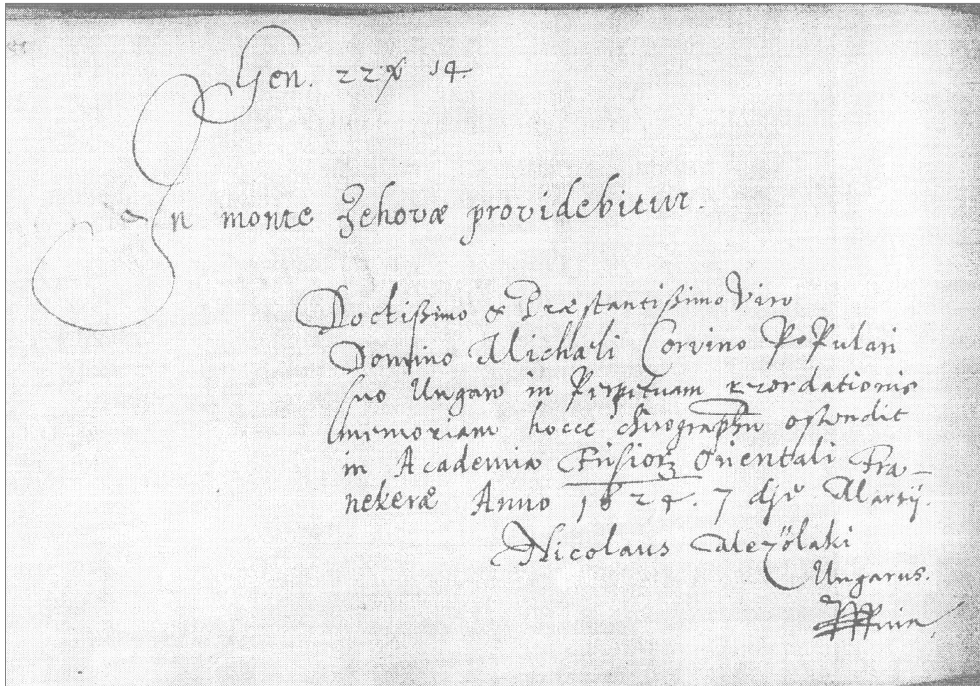 Gen. 22 ꝟ 14.
In monte Jehovæ providebitur.
Doctißimo & Præstantißimo Viro
Domino Michaeli Corvino Populari
suo Ungaro in Perpetuam recordationis
memoriam hocce chirographū ostendit
in Academia Frisiorꝝ Orientali Fra-
nekeræ Anno 1624. 7 die Martij.
Nicolaus
Ungarus.